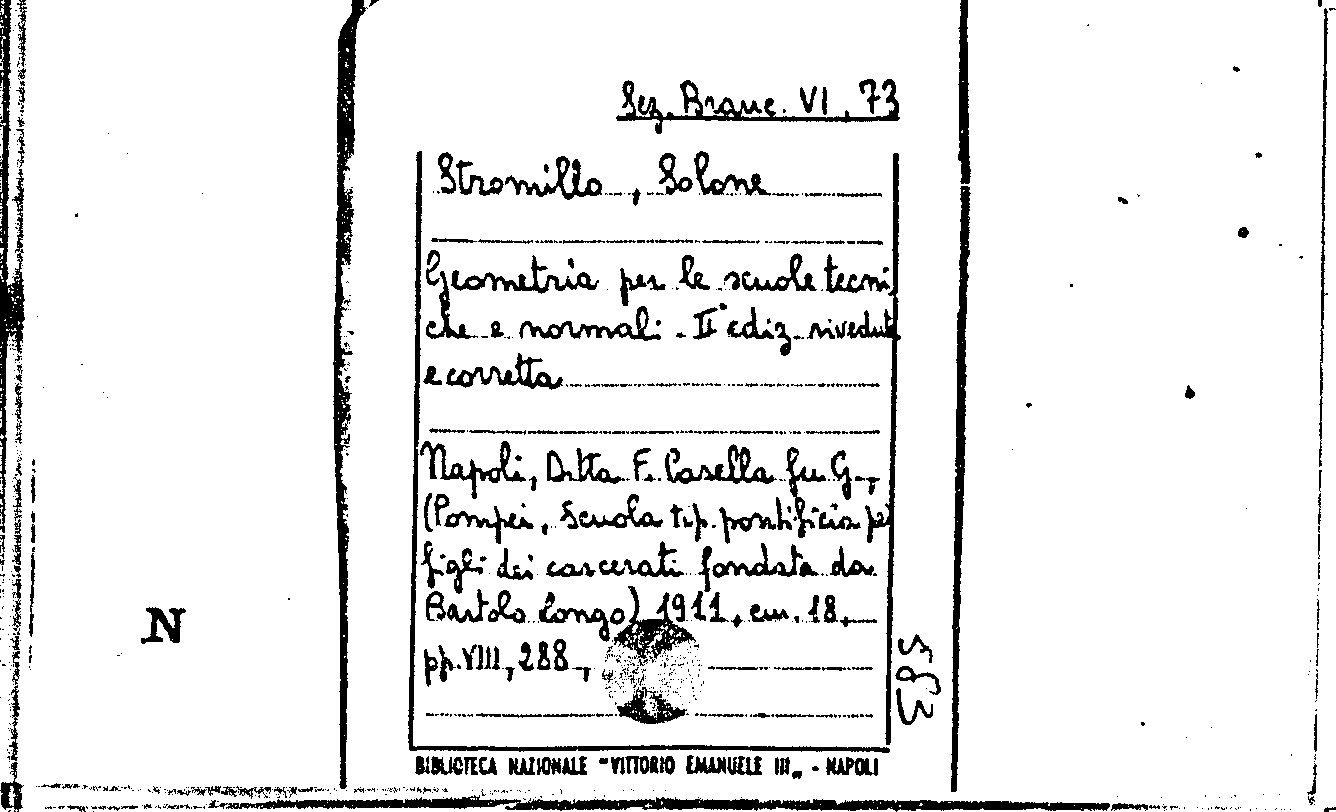 Sez. Branc. VI, 73
Stromillo, Solone
Geometria per le scuole tecni
che e normali - II° ediz. riveduta
e corretta
Napoli, Ditta F. Casella fu G.,
(Pompei, Scuola tip. pontificia pei
figli dei carcerati fondata da
Bartolo Longo) 1911, cm. 18,
pp. VIII, 288.,
N
BIBLIOTECA NAZIONALE "VITTORIO EMANUELE III„ - NAPOLI